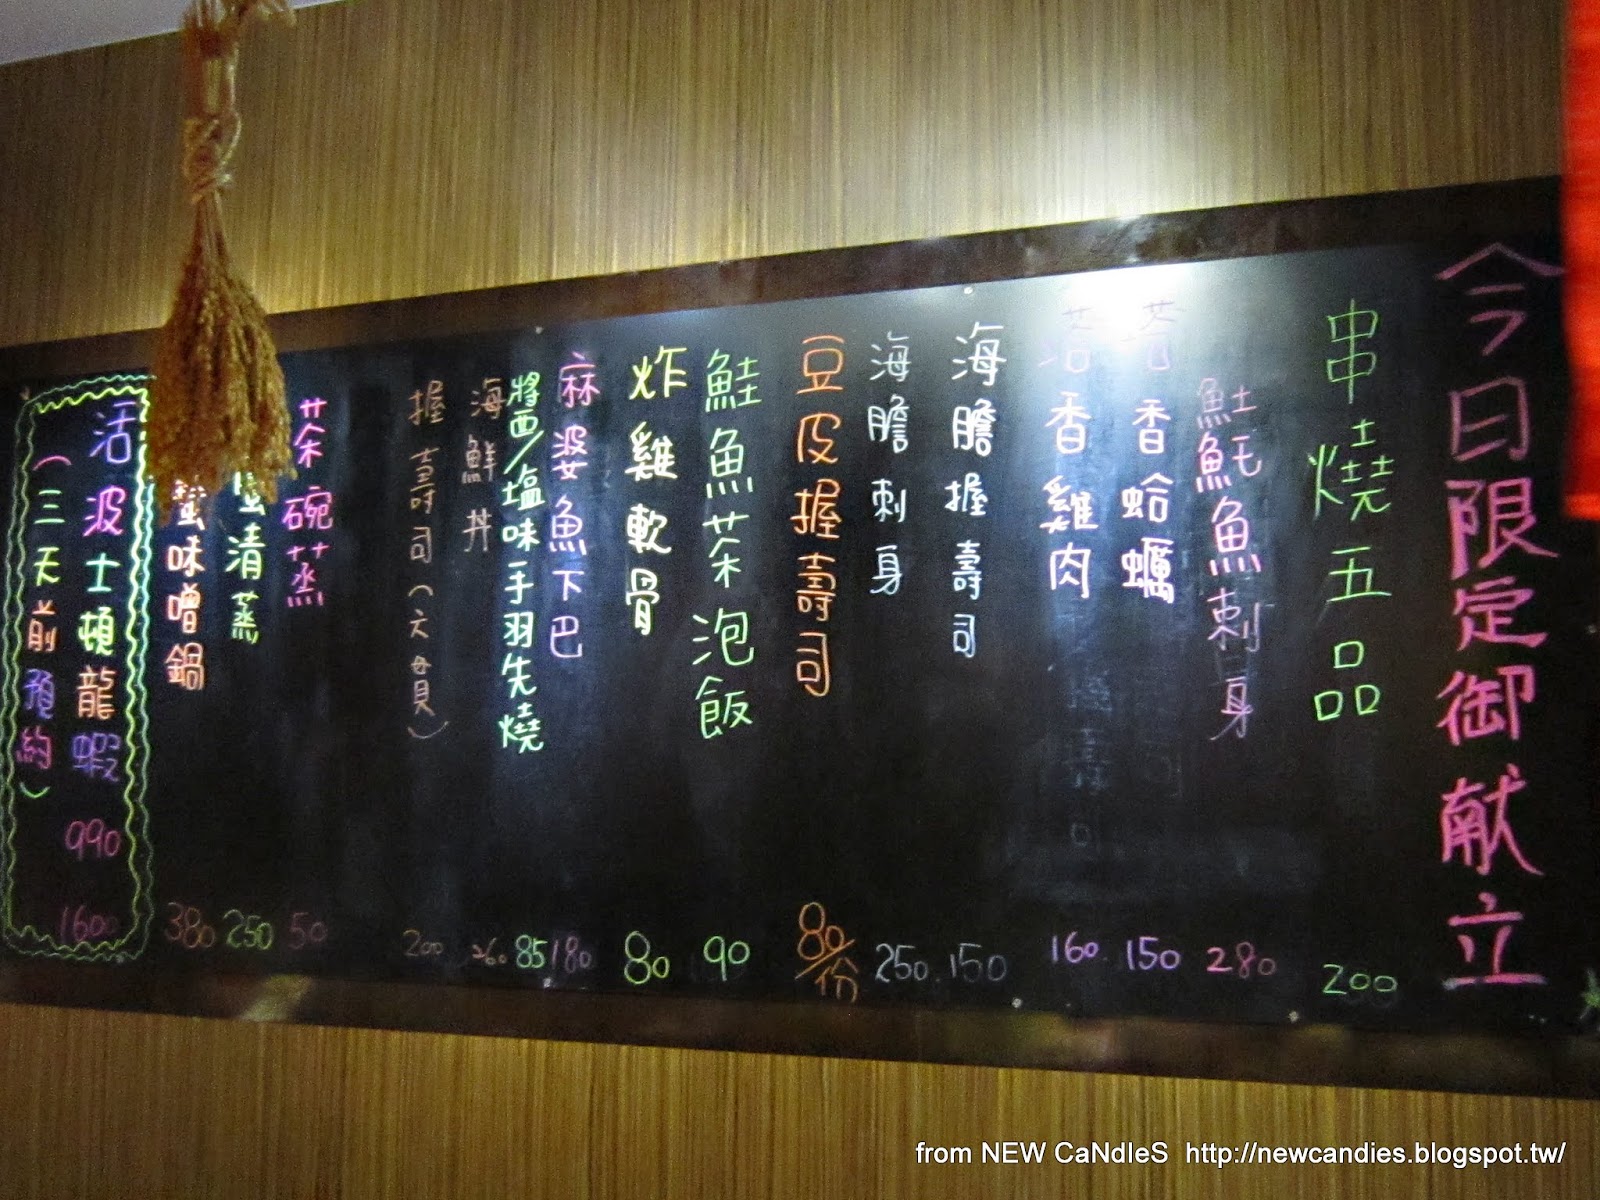 今日限定御献立
串燒五品 200
魠魠魚刺身 280
香蛤蠣 150
香雞肉 160
海膽握壽司 150
海膽刺身 250
豆皮握壽司 80/份
鮭魚茶泡飯 90
炸雞軟骨 80
麻婆魚下巴 180
將西/塩味手羽先燒 85
海鮮丼 260
握壽司(六貫) 200
茶碗蒸 50
清蒸 250
味噌鍋 380
活波士頓龍蝦 990
1600
(三天前預約)
from NEW CaNdleS http://newcandies.blogspot.tw/